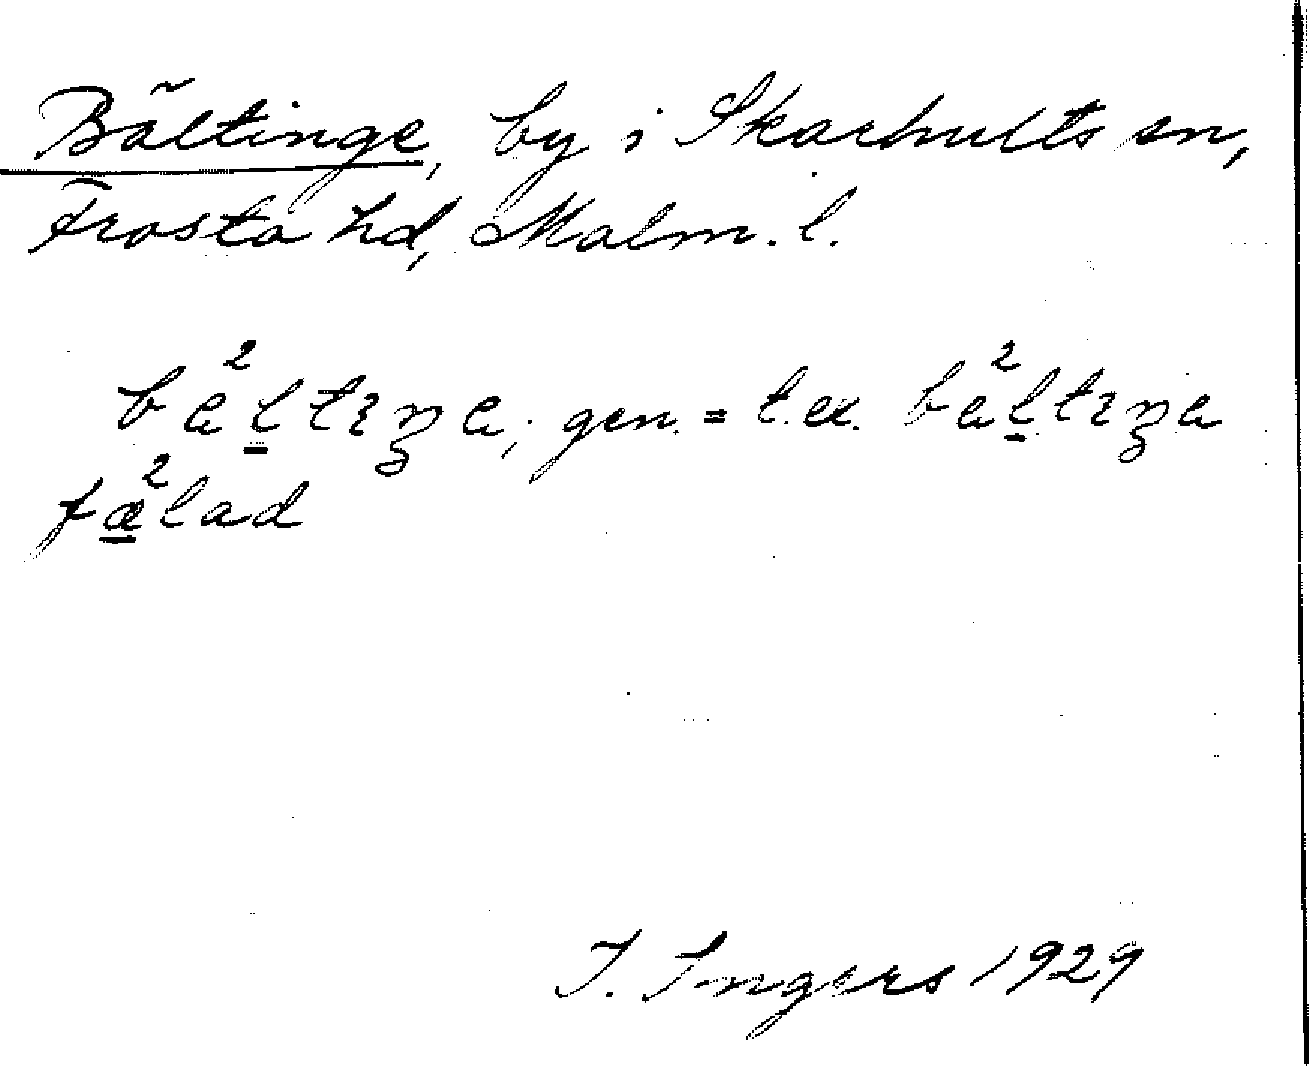 Bältinge, by i Skarhults sn,
Frosta hd, Malm. l.
bæ²l̲tɩŋa; gen. = t.ex. bæ²l̲tɩŋa
fæ̲²lad
I. Ingers 1929